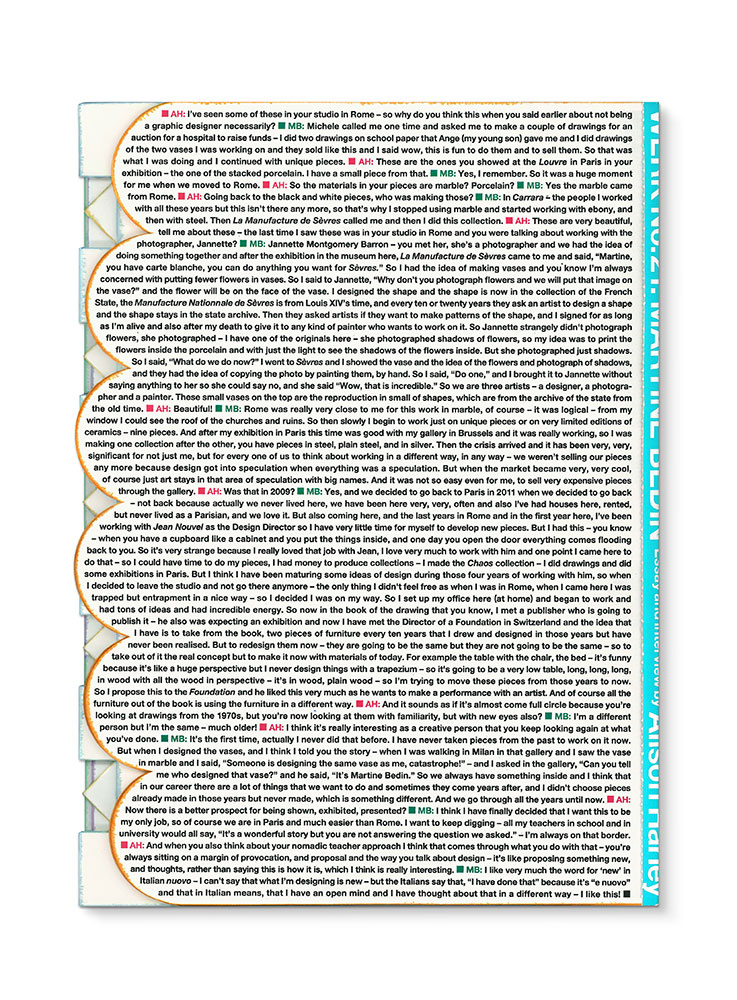 ■ AH: I've seen some of these in your studio in Rome – so why do you think this when you said earlier about not being
a graphic designer necessarily? ■ MB: Michele called me one time and asked me to make a couple of drawings for an
auction for a hospital to raise funds – I did two drawings on school paper that Ange (my young son) gave me and I did drawings
of the two vases I was working on and they sold like this and I said wow, this is fun to do them and to sell them. So that was
what I was doing and I continued with unique pieces. ■ AH: These are the ones you showed at the Louvre in Paris in your
exhibition – the one of the stacked porcelain. I have a small piece from that. ■ MB: Yes, I remember. So it was a huge moment
for me when we moved to Rome. ■ AH: So the materials in your pieces are marble? Porcelain? ■ MB: Yes the marble came
from Rome. ■ AH: Going back to the black and white pieces, who was making those? ■ MB: In Carrara – the people I worked
with all these years but this isn't there any more, so that's why I stopped using marble and started working with ebony, and
then with steel. Then La Manufacture de Sèvres called me and then I did this collection. ■ AH: These are very beautiful,
tell me about these – the last time I saw these was in your studio in Rome and you were talking about working with the
photographer, Jannette? ■ MB: Jannette Montgomery Barron – you met her, she's a photographer and we had the idea of
doing something together and after the exhibition in the museum here, La Manufacture de Sèvres came to me and said, “Martine,
you have carte blanche, you can do anything you want for Sèvres.” So I had the idea of making vases and you know I'm always
concerned with putting fewer flowers in vases. So I said to Jannette, “Why don't you photograph flowers and we will put that image on
the vase?” and the flower will be on the face of the vase. I designed the shape and the shape is now in the collection of the French
State, the Manufacture Nationnale de Sèvres is from Louis XIV's time, and every ten or twenty years they ask an artist to design a shape
and the shape stays in the state archive. Then they asked artists if they want to make patterns of the shape, and I signed for as long
as I'm alive and also after my death to give it to any kind of painter who wants to work on it. So Jannette strangely didn't photograph
flowers, she photographed – I have one of the originals here – she photographed shadows of flowers, so my idea was to print the
flowers inside the porcelain and with just the light to see the shadows of the flowers inside. But she photographed just shadows.
So I said, “What do we do now?” I went to Sèvres and I showed the vase and the idea of the flowers and photograph of shadows,
and they had the idea of copying the photo by painting them, by hand. So I said, “Do one,” and I brought it to Jannette without
saying anything to her so she could say no, and she said “Wow, that is incredible.” So we are three artists – a designer, a photogra-
pher and a painter. These small vases on the top are the reproduction in small of shapes, which are from the archive of the state from
the old time. ■ AH: Beautiful! ■ MB: Rome was really very close to me for this work in marble, of course – it was logical – from my
window I could see the roof of the churches and ruins. So then slowly I begin to work just on unique pieces or on very limited editions of
ceramics – nine pieces. And after my exhibition in Paris this time was good with my gallery in Brussels and it was really working, so I was
making one collection after the other, you have pieces in steel, plain steel, and in silver. Then the crisis arrived and it has been very, very,
significant for not just me, but for every one of us to think about working in a different way, in any way – we weren't selling our pieces
any more because design got into speculation when everything was a speculation. But when the market became very, very cool,
of course just art stays in that area of speculation with big names. And it was not so easy even for me, to sell very expensive pieces
through the gallery. ■ AH: Was that in 2009? ■ MB: Yes, and we decided to go back to Paris in 2011 when we decided to go back
– not back because actually we never lived here, we have been here very, very, often and also I've had houses here, rented,
but never lived as a Parisian, and we love it. But also coming here, and the last years in Rome and in the first year here, I've been
working with Jean Nouvel as the Design Director so I have very little time for myself to develop new pieces. But I had this – you know
– when you have a cupboard like a cabinet and you put the things inside, and one day you open the door everything comes flooding
back to you. So it's very strange because I really loved that job with Jean, I love very much to work with him and one point I came here to
do that – so I could have time to do my pieces, I had money to produce collections – I made the Chaos collection – I did drawings and did
some exhibitions in Paris. But I think I have been maturing some ideas of design during those four years of working with him, so when
I decided to leave the studio and not go there anymore – the only thing I didn't feel free as when I was in Rome, when I came here I was
trapped but entrapment in a nice way – so I decided I was on my way. So I set up my office here (at home) and began to work and
had tons of ideas and had incredible energy. So now in the book of the drawing that you know, I met a publisher who is going to
publish it – he also was expecting an exhibition and now I have met the Director of a Foundation in Switzerland and the idea that
I have is to take from the book, two pieces of furniture every ten years that I drew and designed in those years but have
never been realised. But to redesign them now – they are going to be the same but they are not going to be the same – so to
take out of it the real concept but to make it now with materials of today. For example the table with the chair, the bed – it's funny
because it's like a huge perspective but I never design things with a trapezium – so it's going to be a very low table, long, long, long,
in wood with all the wood in perspective – it's in wood, plain wood – so I'm trying to move these pieces from those years to now.
So I propose this to the Foundation and he liked this very much as he wants to make a performance with an artist. And of course all the
furniture out of the book is using the furniture in a different way. ■ AH: And it sounds as if it's almost come full circle because you're
looking at drawings from the 1970s, but you're now looking at them with familiarity, but with new eyes also? ■ MB: I'm a different
person but I'm the same – much older! ■ AH: I think it's really interesting as a creative person that you keep looking again at what
you've done. ■ MB: It's the first time, actually I never did that before. I have never taken pieces from the past to work on it now.
But when I designed the vases, and I think I told you the story – when I was walking in Milan in that gallery and I saw the vase
in marble and I said, “Someone is designing the same vase as me, catastrophe!” – and I asked in the gallery, “Can you tell
me who designed that vase?” and he said, “It's Martine Bedin.” So we always have something inside and I think that
in our career there are a lot of things that we want to do and sometimes they come years after, and I didn't choose pieces
already made in those years but never made, which is something different. And we go through all the years until now. ■ AH:
Now there is a better prospect for being shown, exhibited, presented? ■ MB: I think I have finally decided that I want this to be
my only job, so of course we are in Paris and much easier than Rome. I want to keep digging – all my teachers in school and in
university would all say, “It's a wonderful story but you are not answering the question we asked.” – I'm always on that border.
■ AH: And when you also think about your nomadic teacher approach I think that comes through what you do with that – you're
always sitting on a margin of provocation, and proposal and the way you talk about design – it's like proposing something new,
and thoughts, rather than saying this is how it is, which I think is really interesting. ■ MB: I like very much the word for ‘new’ in
Italian nuovo – I can't say that what I'm designing is new – but the Italians say that, “I have done that” because it's “e nuovo”
and that in Italian means, that I have an open mind and I have thought about that in a different way – I like this! ■
WERK No.21: MARTINE BEDIN Essay and interview by Alison Harley